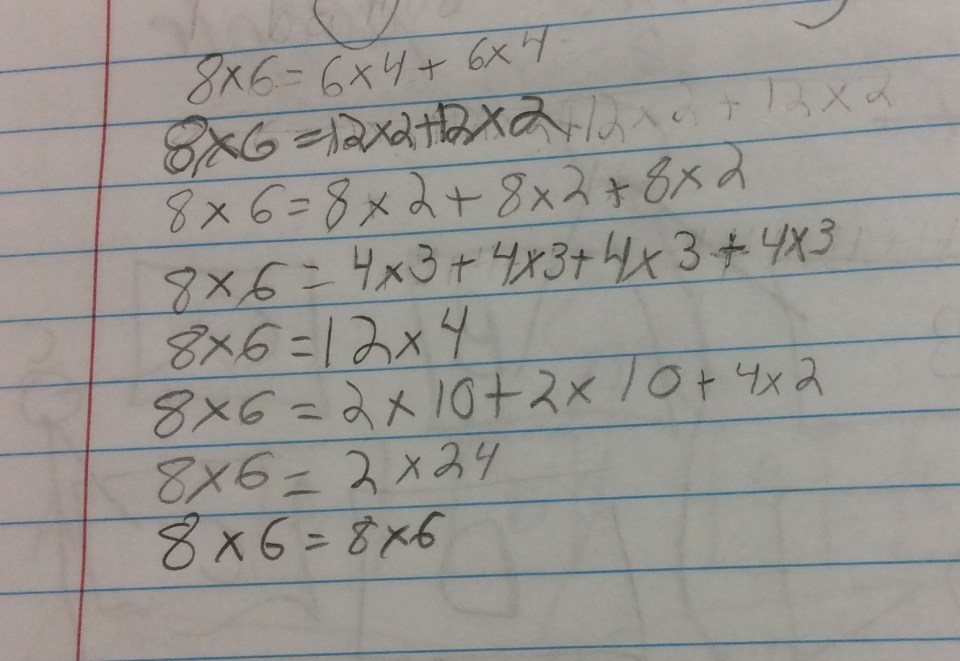 8×6=6×4+ 6×4
8×6=12×2+12×2
8×6=8×2+8×2+8×2
8×6=4×3+4×3+4×3+4×3
8×6=12×4
8×6=2×10+2×10+4×2
8×6=2×24
8×6=8×6